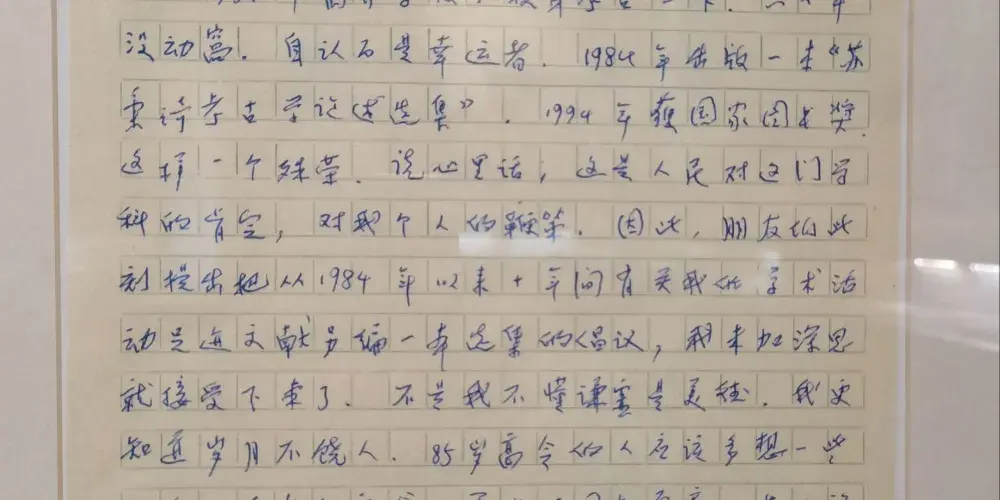 没动窝. 自认为是幸运者. 1984年出版一本“苏
秉琦考古学论述选集”. 1994年获国家图书奖
这样一个殊荣. 说心里话, 这是人民对这门学
科的肯定, 对我个人的鞭策. 因此, 朋友们此
刻提出把从1984年以来十年间有关我的学术活
动足迹文献另编一本选集的倡议, 我未加深思
就接受下来了. 不是我不懂谦虚是美德. 我更
知道岁月不饶人. 85岁高令的人应该多想一些